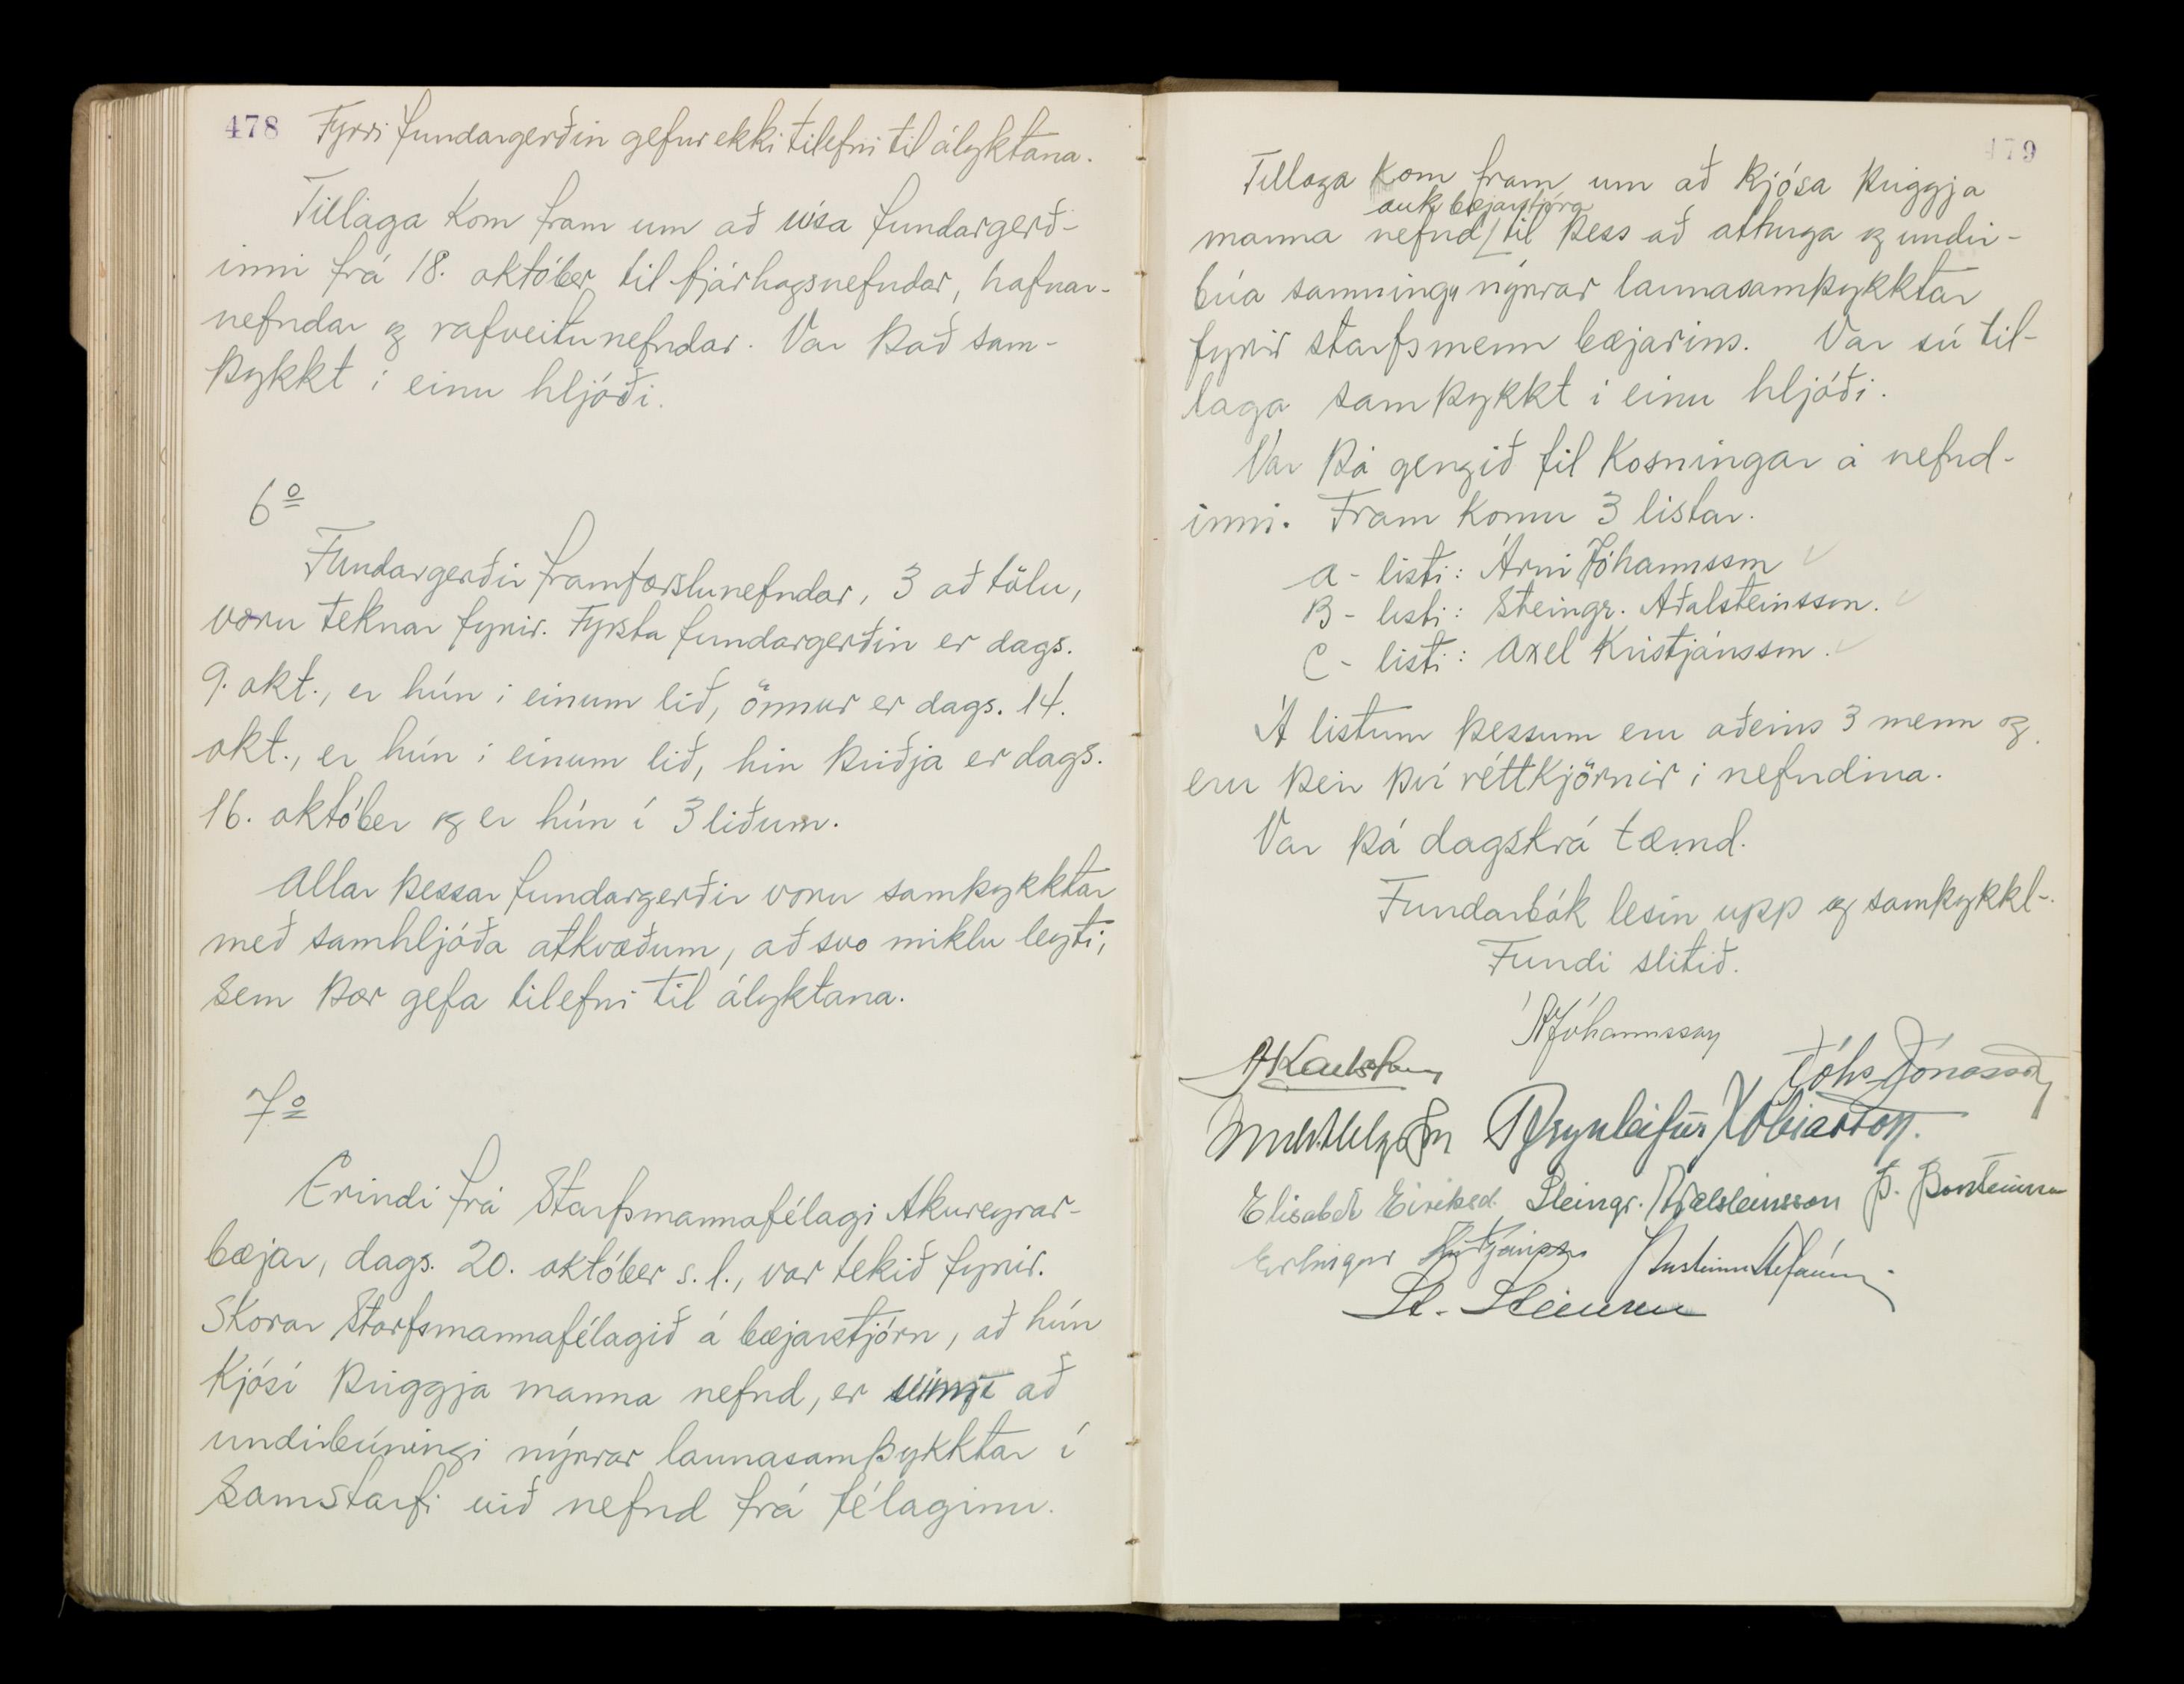 478 Fyrri fundargerðin gefur ekki tilefni til ályktana.
Tillaga kom fram um að vísa fundargerð-
inni frá 18. október til fjárhagsnefndar, hafnar-
nefndar og rafveitunefndar. Var það sam-
þykkt í einu hljóði.
6º
Fundargerðir framfærslunefndar, 3 að tölu,
voru teknar fyrir. Fyrsta fundargerðin er dags.
9. okt., er hún í einum lið, önnur er dags. 14.
okt., er hún í einum lið, hin þriðja er dags.
16. október og er hún í 3 liðum.
Allar þessar fundargerðir voru samþykktar
með samhljóða atkvæðum, að svo miklu leyti,
sem þær gefa tilefni til ályktana.
7º
Erindi frá Starfsmannafélagi Akureyrar-
bæjar, dags. 20. október s.l., var tekið fyrir.
Skorar Starfsmannafélagið á bæjarstjórn, að hún
kjósi þriggja manna nefnd, er vinni að
undirbúningi nýrrar launasamþykktar í
samstarfi við nefnd frá félaginu.
479
Tillaga kom fram um að kjósa þriggja
auk bæjarstjóra
manna nefnd til þess að athuga og undir-
búa samningu nýrrar launasamþykktar
fyrir starfsmenn bæjarins. Var sú til-
laga samþykkt í einu hljóði.
Var þá gengið til kosningar á nefnd-
inni. Fram komu 3 listar.
A - listi: Árni Jóhannsson
B - listi: Steingr. Aðalsteinsson.
C - listi: Axel Kristjánsson.
Á listum þessum eru aðeins 3 menn og
eru þeir því réttkjörnir í nefndina.
Var þá dagskrá tæmd.
Fundarbók lesin upp og samþykkt.
Fundi slitið.
Á Jóhannsson
Jóhs Jónasson
Brynleifur Tobiasson.
Elísabet Eiríksd. Steingr. Aðalsteinsson Þ. Þorsteinsson
Erlingur Friðjónsson Þorsteinn Stefánsson
St. Steinsen